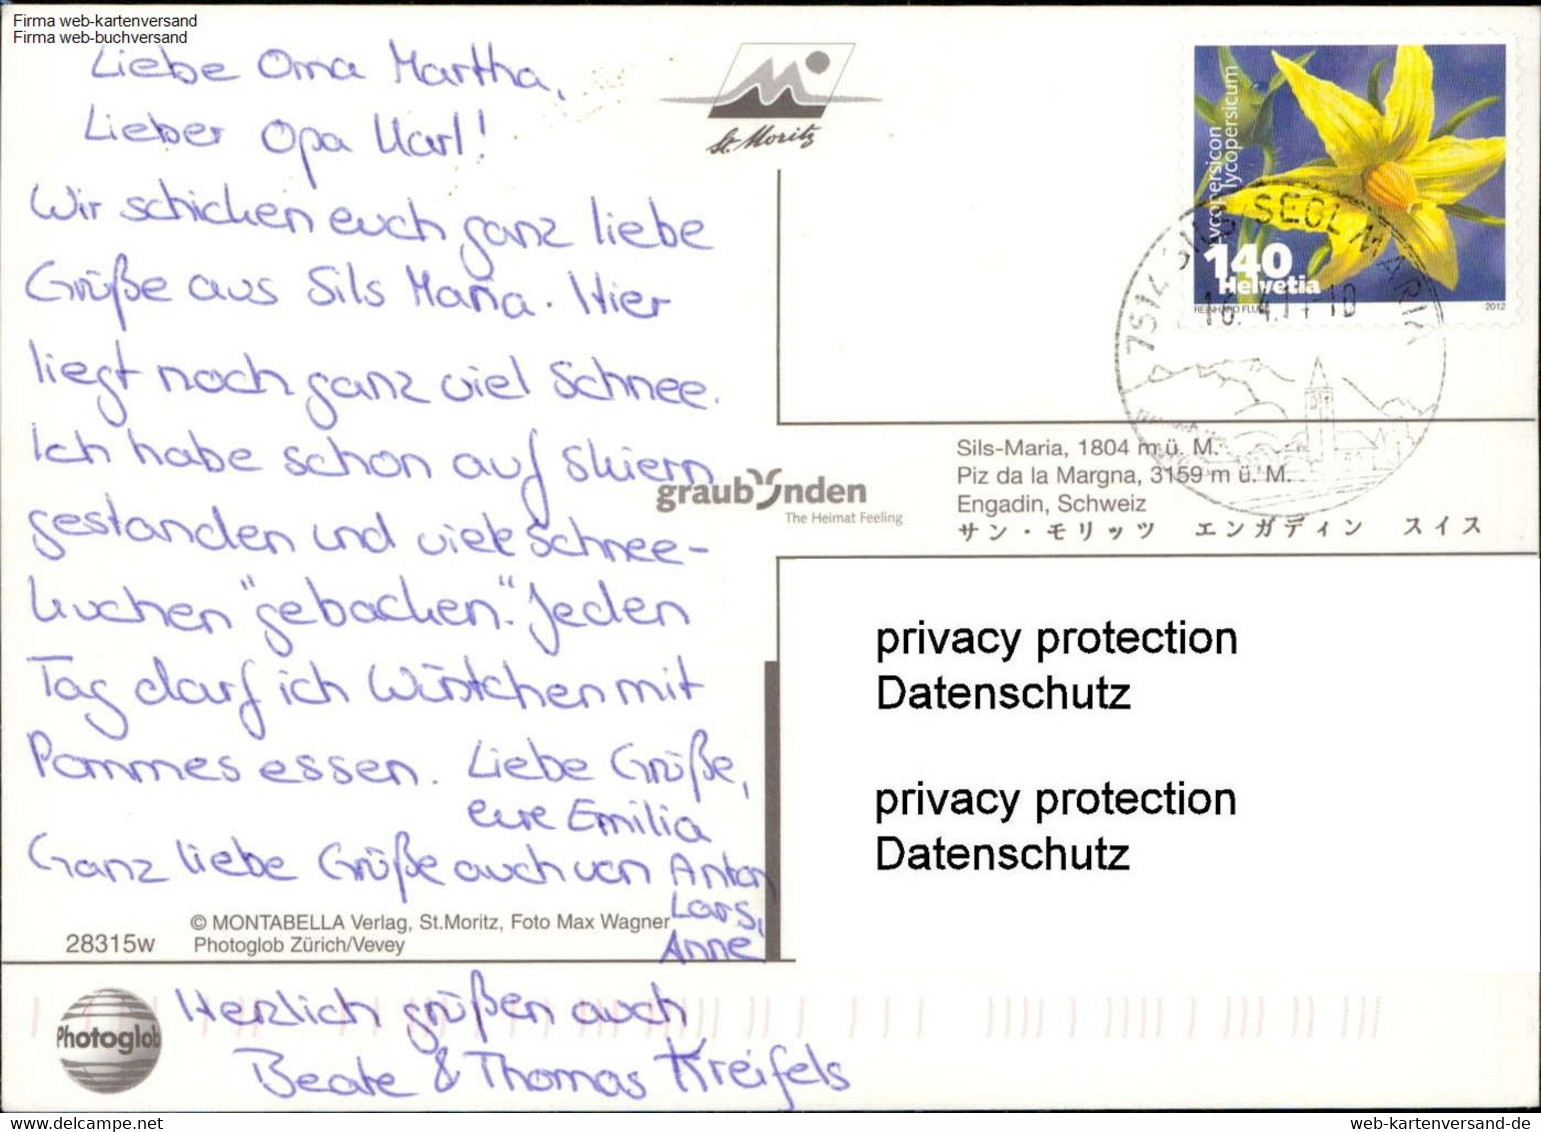 Firma web-kartenversand
Firma web-buchversand
Liebe Oma Martha,
Lieber Opa Karl!
Wir schicken euch ganz liebe
Grüße aus Sils Maria. Hier
liegt noch ganz viel Schnee.
Ich habe schon auf Skiern
gestanden und viele Schnee-
kuchen "gebacken". Jeden
Tag darf ich Würstchen mit
Pommes essen. Liebe Grüße,
eure Emilia
Ganz liebe Grüße auch von Anton
Lars,
Anne
Herzlich grüßen auch
Beate & Thomas Kreifels
© MONTABELLA Verlag, St.Moritz, Foto Max Wagner
28315w Photoglob Zürich/Vevey
Photoglob
St. Moritz
graubünden
The Heimat Feeling
lycopersicon
lycopersicum
140
Helvetia
REINHARD FLURY 2012
7514 SILS SEGL MARIA
Sils-Maria, 1804 m ü. M.
Piz da la Margna, 3159 m ü. M.
Engadin, Schweiz
サン・モリッツ エンガディン スイス
privacy protection
Datenschutz
privacy protection
Datenschutz
www.web-kartenversand.de
web-kartenversand-de